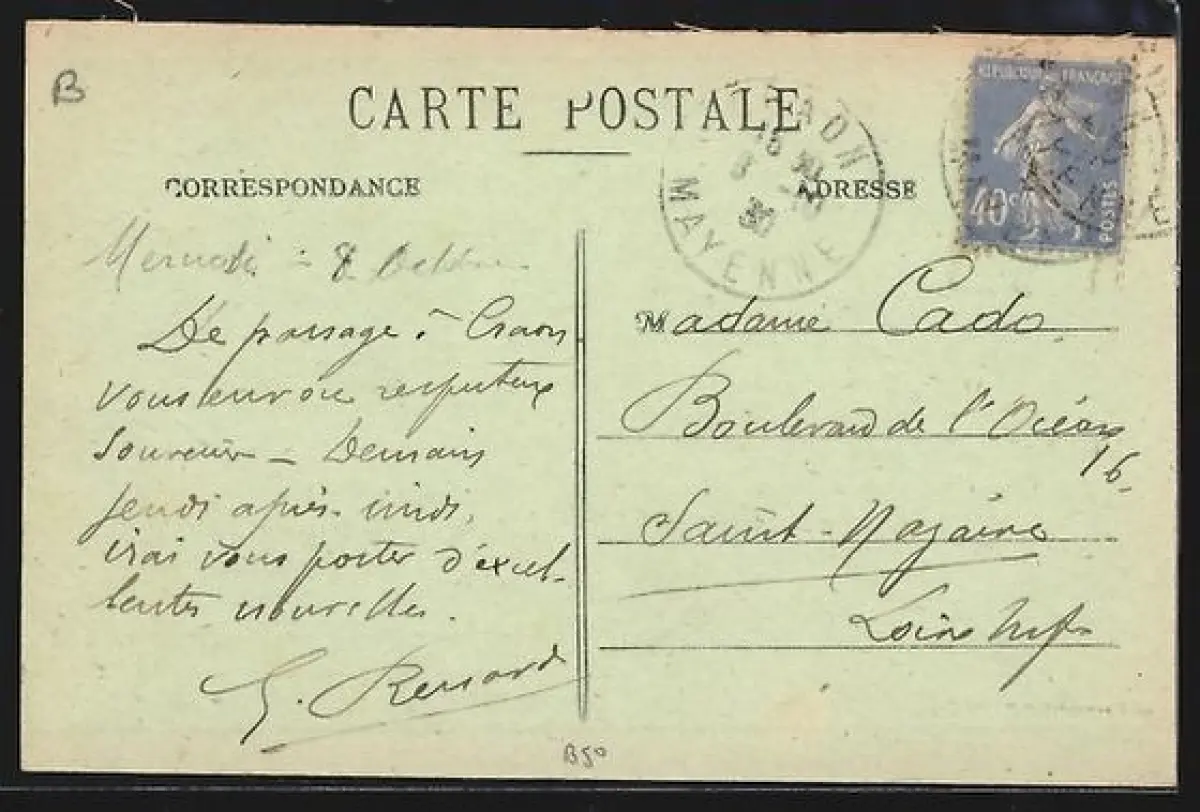 B
CARTE POSTALE
CORRESPONDANCE
Mercredi - 8 Octobre
De passage à Craon
vous envoie respectueux
souvenir - Demain
jeudi après-midi,
irai vous porter d'excel-
lentes nouvelles.
G. Renard
MAYENNE
ADRESSE
REPUBLIQUE FRANÇAISE
40c
POSTES
Madame Cado
Boulevard de l'Océan
16.
Saint-Nazaire
Loire Infre
B50